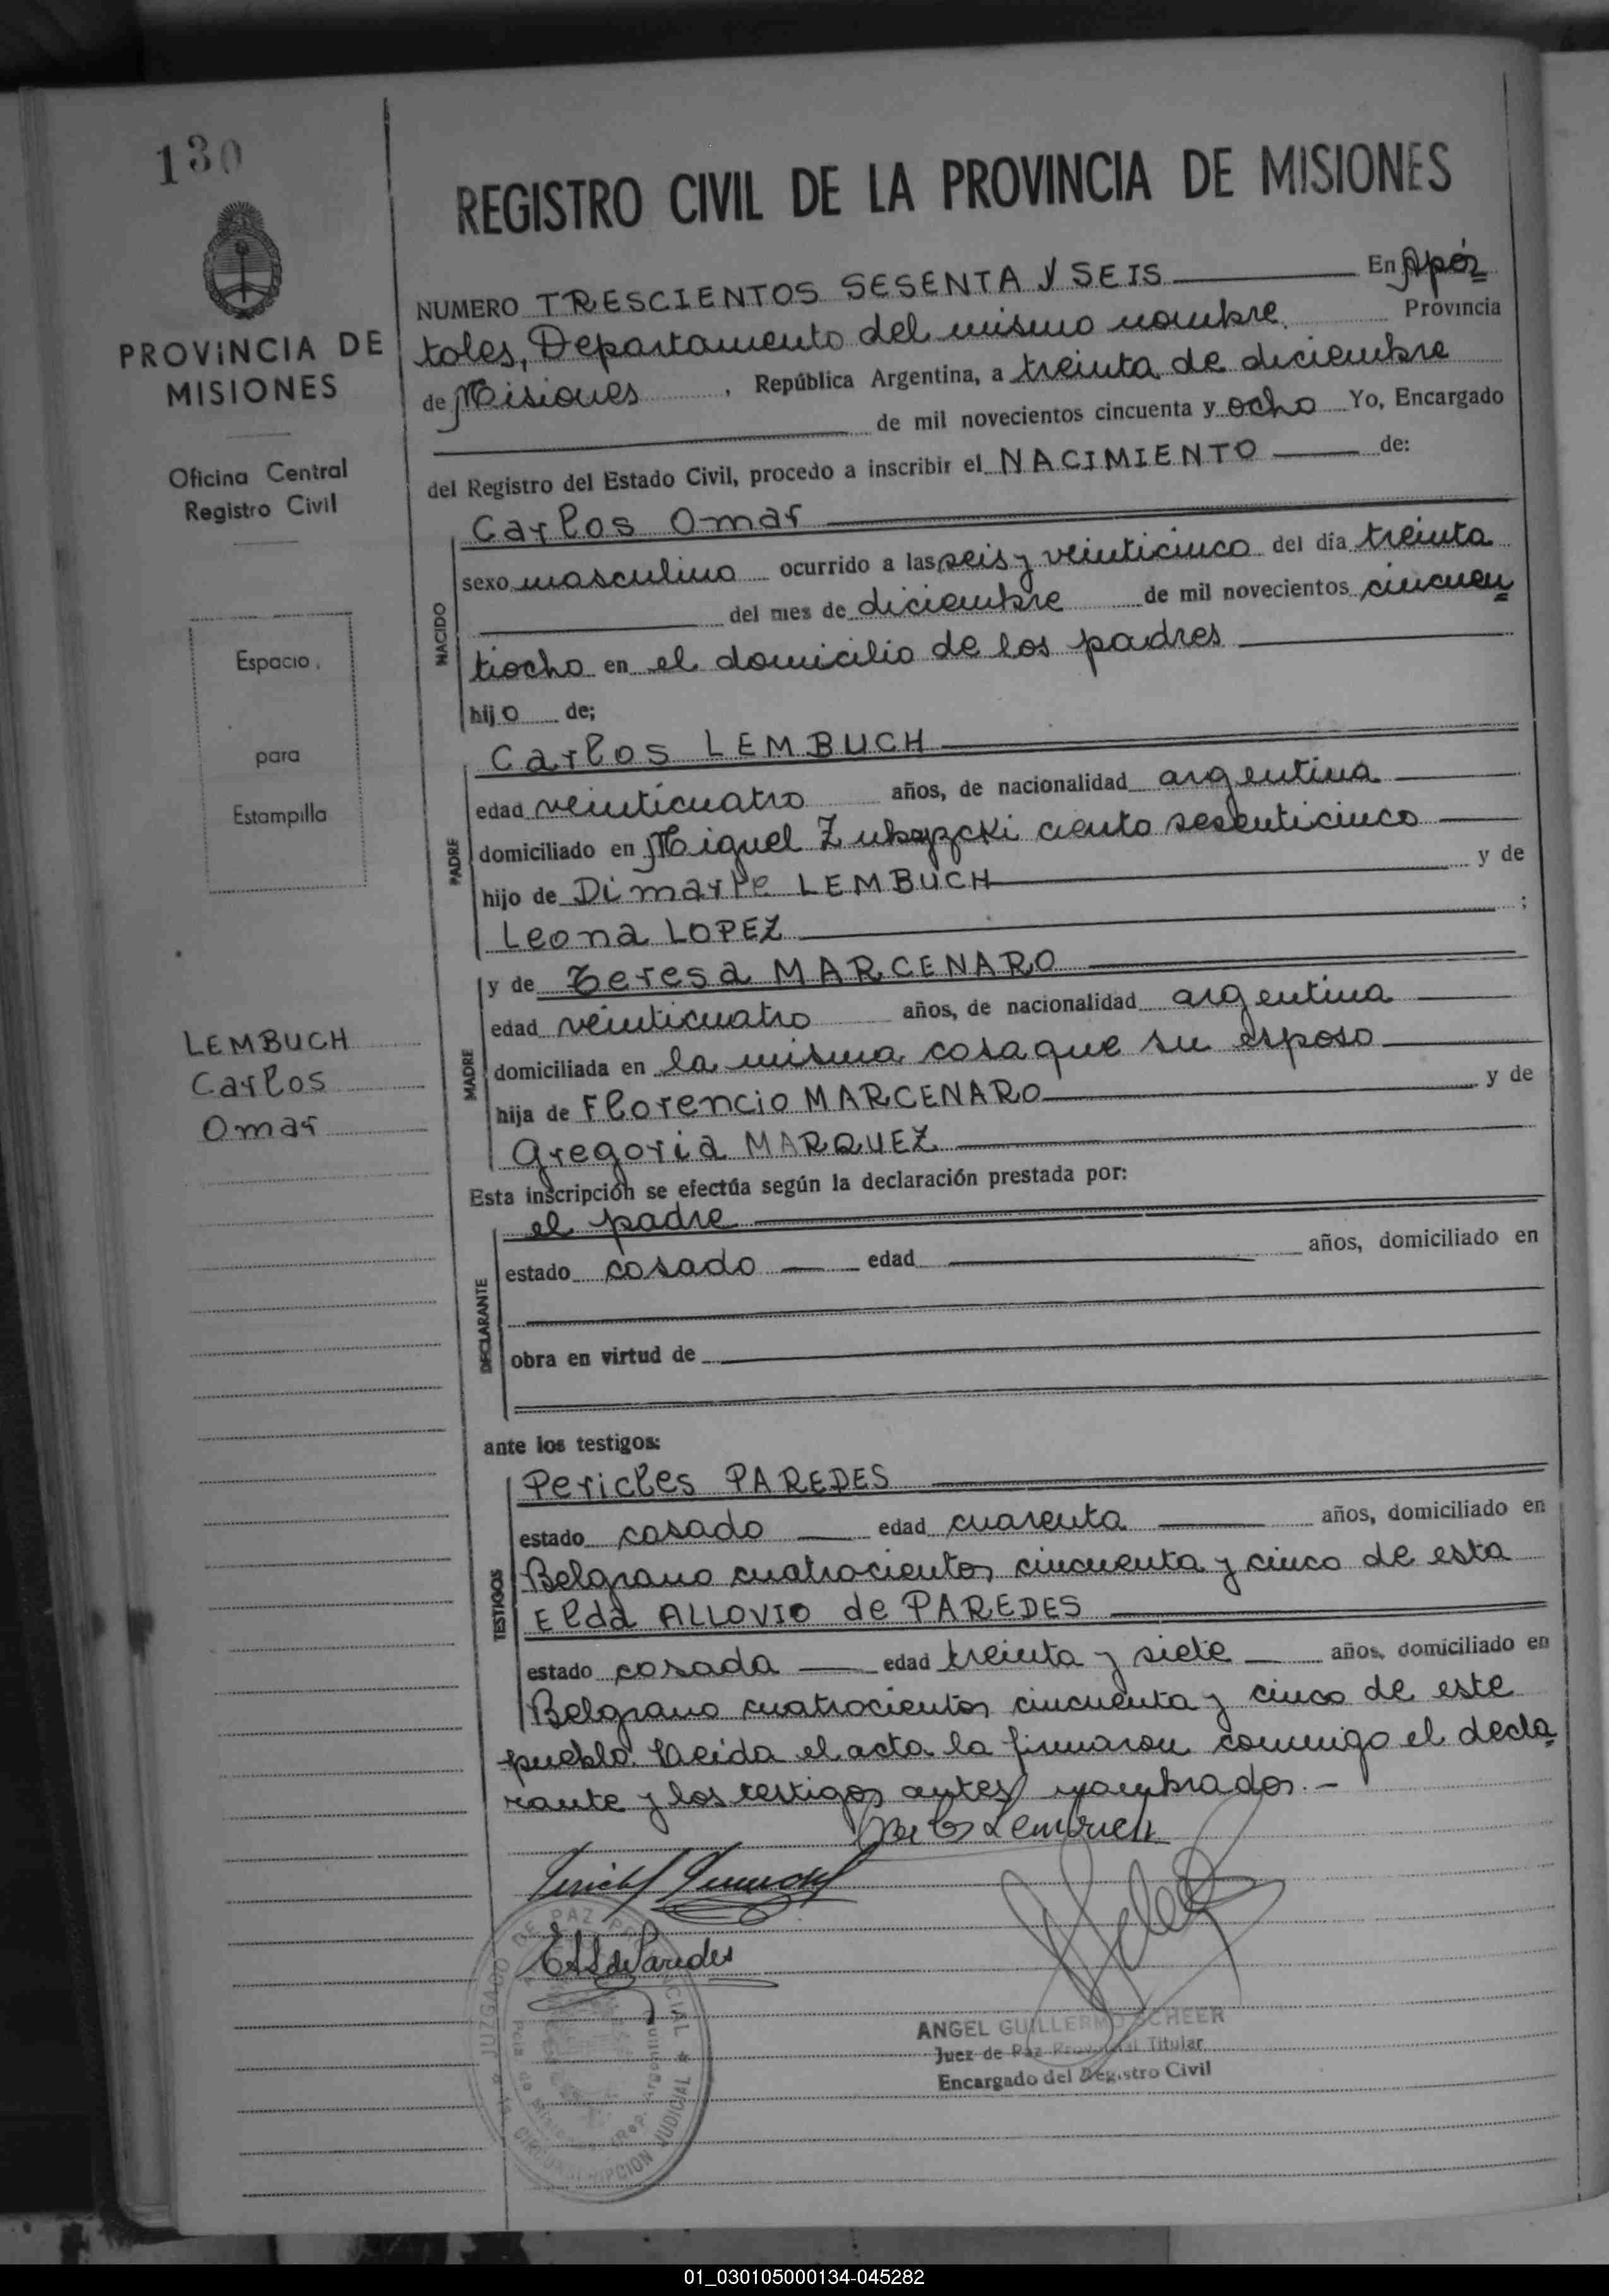 130
REGISTRO CIVIL DE LA PROVINCIA DE MISIONES
PROVINCIA DE
MISIONES
Oficina Central
Registro Civil
Espacio
para
Estampilla
LEMBUCH
Carlos
Omar
NUMERO TRESCIENTOS SESENTA Y SEIS En Após
toles, Departamento del mismo nombre. Provincia
de Misiones, República Argentina, a treinta de diciembre
de mil novecientos cincuenta y ocho Yo, Encargado
del Registro del Estado Civil, procedo a inscribir el NACIMIENTO de:
NACIDO
Carlos Omar
sexo masculino ocurrido a las seis y veinticinco del día treinta
del mes de diciembre de mil novecientos cincuen
tiocho en el domicilio de los padres
hijo de;
PADRE
Carlos LEMBUCH
edad veinticuatro años, de nacionalidad argentina
domiciliado en Miguel ciento sesenticinco
hijo de LEMBUCH y de
Leona LOPEZ ;
MADRE
y de Teresa MARCENARO
edad veinticuatro años, de nacionalidad argentina
domiciliada en la misma casa que su esposo
hija de Florencio MARCENARO y de
Gregoria MARQUEZ
Esta inscripción se efectúa según la declaración prestada por:
DECLARANTE
el padre
estado casado edad años, domiciliado en
obra en virtud de
ante los testigos:
TESTIGOS
Pericles PAREDES
estado casado edad cuarenta años, domiciliado en
Belgrano cuatrocientos cincuenta y cinco de esta
Elda ALLOVIO de PAREDES
estado casada edad treinta y siete años, domiciliado en
Belgrano cuatrocientos cincuenta y cinco de este
pueblo. Leida el acta la firmaron conmigo el decla
rante y los testigos antes nombrados.-
Carlos Lembuch
de Paredes
JUZGADO DE PAZ
CIRCUNSCRIPCION JUDICIAL
ANGEL GUILLERMO SCHEER
Juez de Paz Provincial Titular
Encargado del Registro Civil
01_030105000134-045282